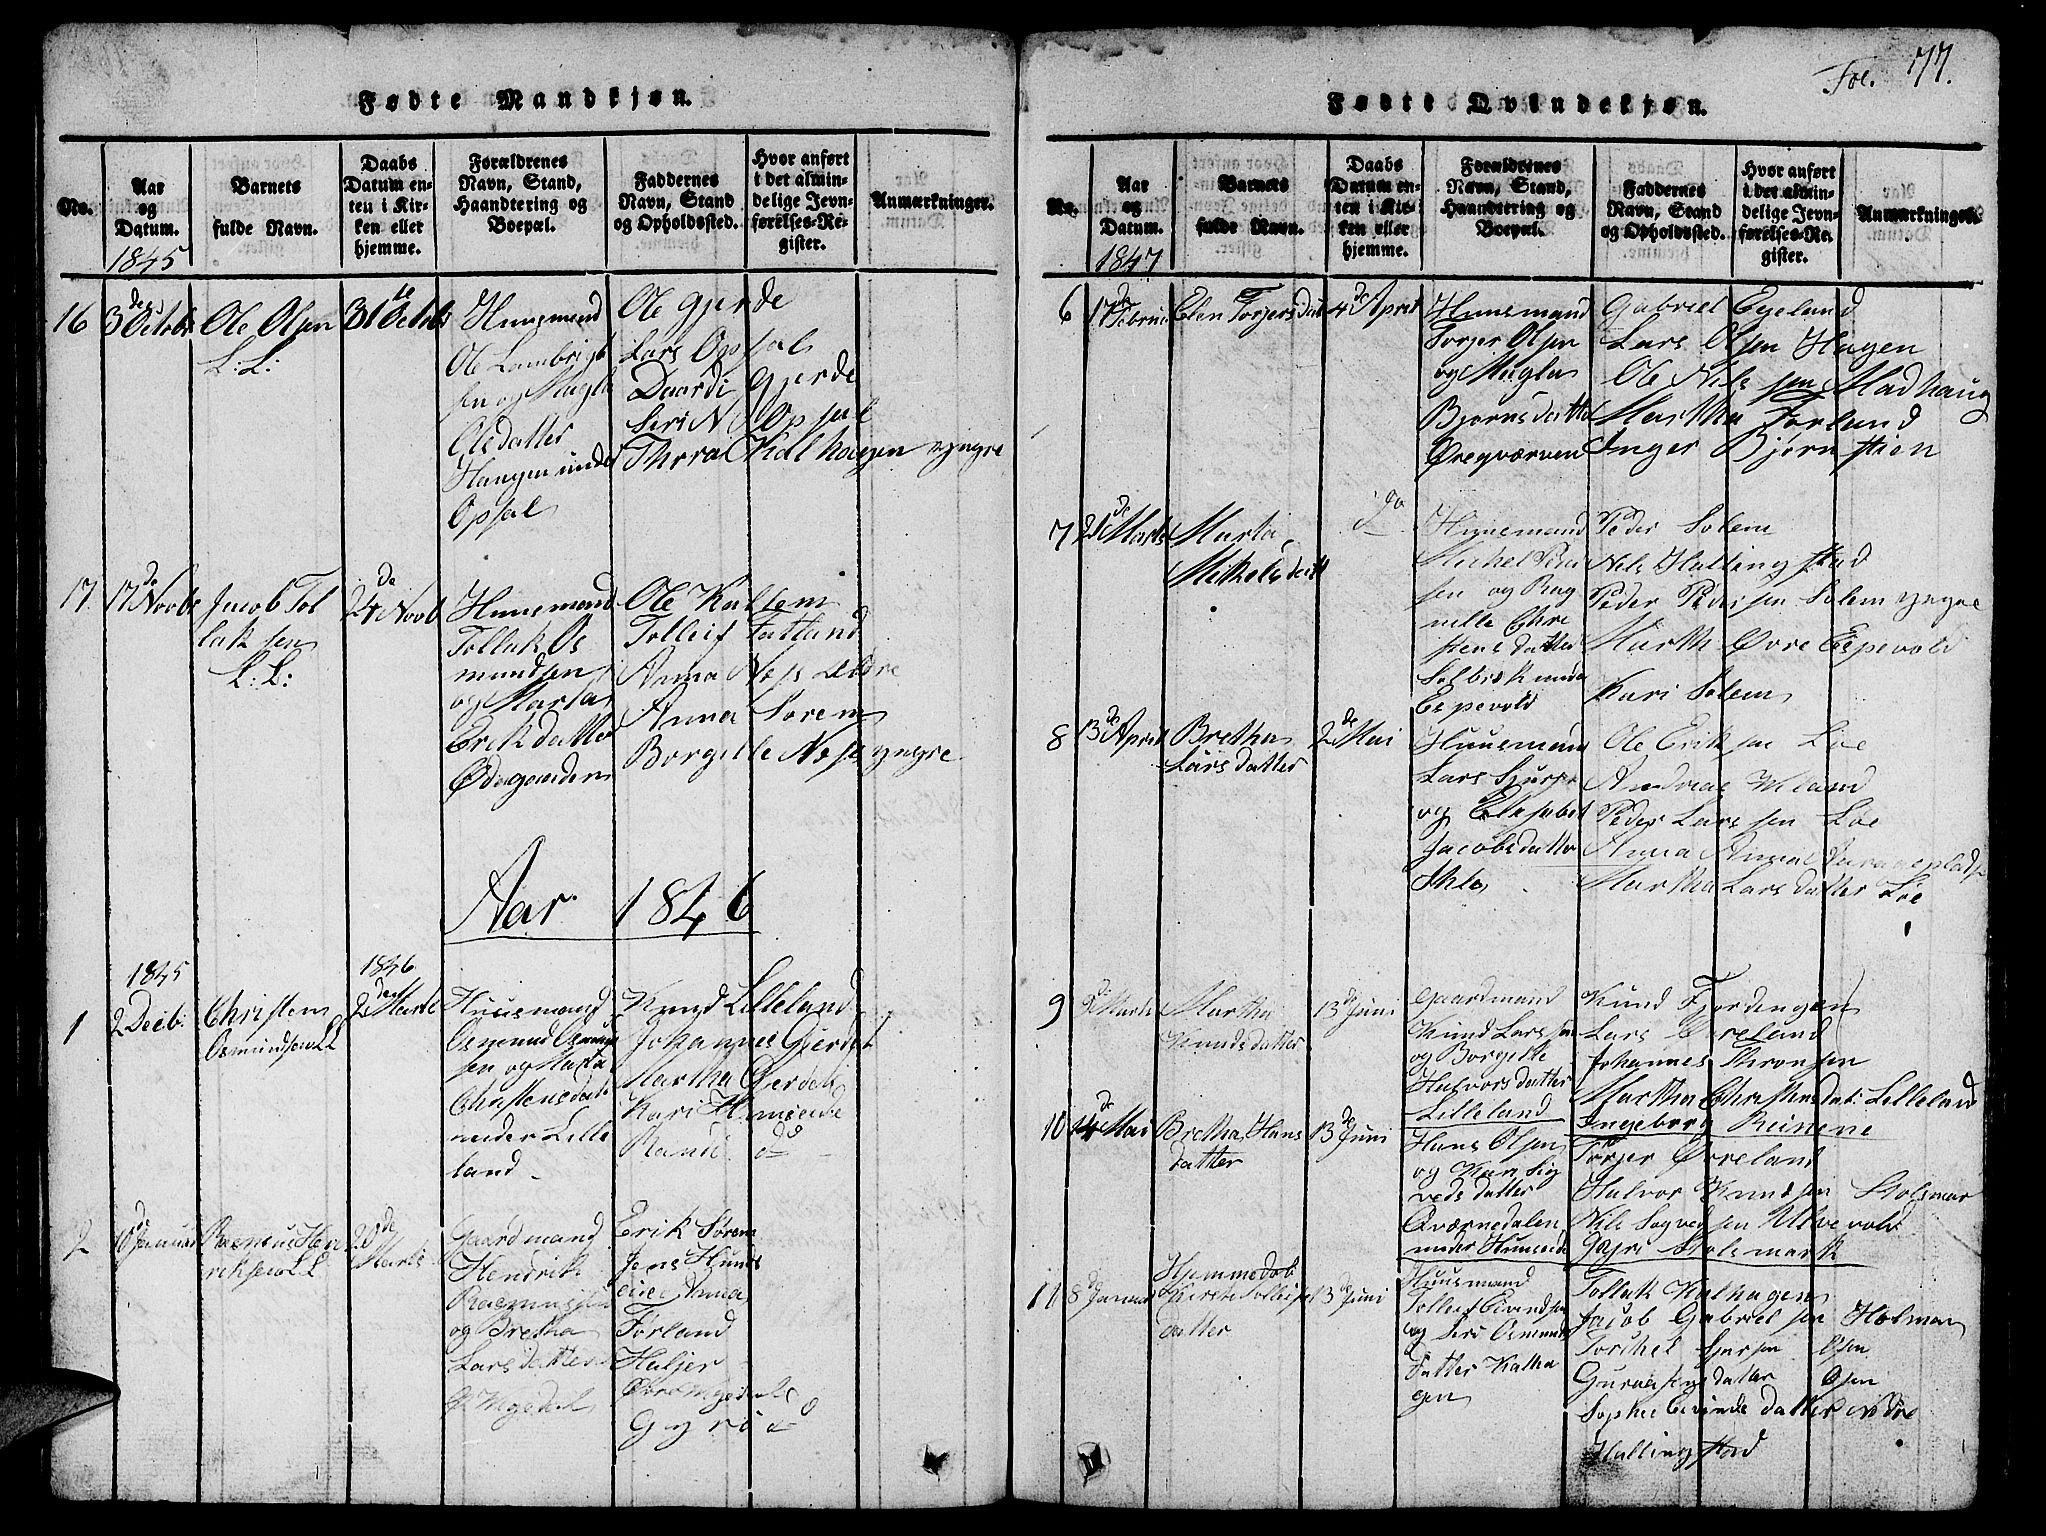 Fødte Mandkjøn.
No.
Aar og Datum.
Barnets fulde Navn.
Daabs Datum enten i Kirken eller hjemme.
Forældrenes Navn, Stand, Haandtering og Boepæl.
Faddernes Navn, Stand og Opholdssted.
Hvor anført i det almindelige Jevnførelses-Register.
Anmærkninger.
1845
16
3de Octobr
Ole Olsen
L: L:
31te Octob
Huusmand
Ole Lambrigt
sen og Magla
Olsdatter
Haugen under
Opsal
Ole Gjerde
Lars Opsal
Daardi Gjerde
Seri N Opsal
Thora Kalhaugen yngre
17
17de Novbr
Jacob Tol
lak sen
L: L:
24de Novb
Huusmand
Tollak Os
mundsen
og Marta
Erikdatter
Ødegaarden
Ole Kaltem
Tolleif Fatland
Anna Næs ældre
Anna Sørem
Borgille Næs yngre
Aar 1846
1
1845
2 Decb:
Christen
Osmundsen L L
1846
2den Marts
Huusmand
Osmund Osmund
sen og Marta
Christensdatt
under Lille
land
Knud Lilleland
Johannes Gjerde
Martha Gjerde
Kari Hunseide
Rande do
2
10de Januar
Rasmus Hen
riksen L L
20de Marts
Gaardmand
Hendrik
Rasmussen
og Bretha
Larsdatter
Erik Sørem
Jens Huns
eide Anna
Førland
Haljer
Gyri do
Fol. 77.
Fødte Qvindekjøn.
No.
Aar og Datum.
Barnets fulde Navn.
Daabs Datum enten i Kirken eller hjemme.
Forældrenes Navn, Stand, Haandtering og Boepæl.
Faddernes Navn, Stand og Opholdssted.
Hvor anført i det almindelige Jevnførelses-Register.
Anmærkninger.
1847
6
17de Februar
Elen Torjersdat
4de April
Huusmand
Torjer Olsen
og Magla
Bjørnsdatter
Øregværven
Gabriel Egeland
Lars Olsen Hagen
Ole Nilssen Madhaug
Martha Førland
Inger Bjørnstien
7
21de Marts
Marta
Mikelsdatt
do
Huusmand
Mickel Peder
sen og Rag
nille Chri
stensdatter
Solbisk under
Espevold
Peder Solem
Nels Hallingstad
Peder Pedersen Solem yngre
Marth Øvre Espevold
Kari Solem
8
13de April
Bretha
Larsdatter
2de Mai
Huusmand
Lars Sjurse
og Elisabet
Jacobsdatter
Ole Eriksen Løe
Andreas Meland
Peder Larssen Løe
Martha Larsdatter Løe
9
Marts
Martha
Knudsdatter
13de Juni
Gaardmand
Knud Larssen
og Borgille
Halvorsdatter
Lilleland
Knud Fjordengen
Lars Øreland
Johannes Thronsen
Martha Christensdat: Lilleland
Ingeborg Reinene
10
14de Mai
Bretha Hans
datter
13de Juni
Hans Olsen
og Kari Sig
vedsdatter
Qværnedalen
under Hunseide
Torjer Ørreland
Halvor Knudsen Stolsmar
Nils Sigvedsen Ulvevold
Gyri Stolsmark
11
8de Januar
Hjemmedøb
datter
13de Juni
Huusmand
Tollef Eivindsen
og Seri Osmunds
datter Kalha
gen
Tollak Kalhagen
Jacob Gabrielsen Holman
Torchel Osen
Osen
Sophie Eivindsdatter Nedre
Hallingstad